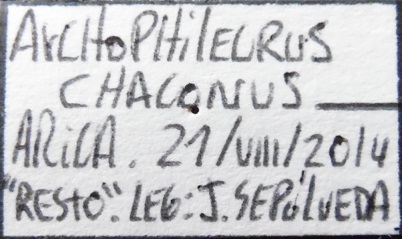 ArCHoPHilEURUS
CHACONUS
ARiCA. 21/VIII/2014
"RESTO". LEG: J. SEPúLVEDA